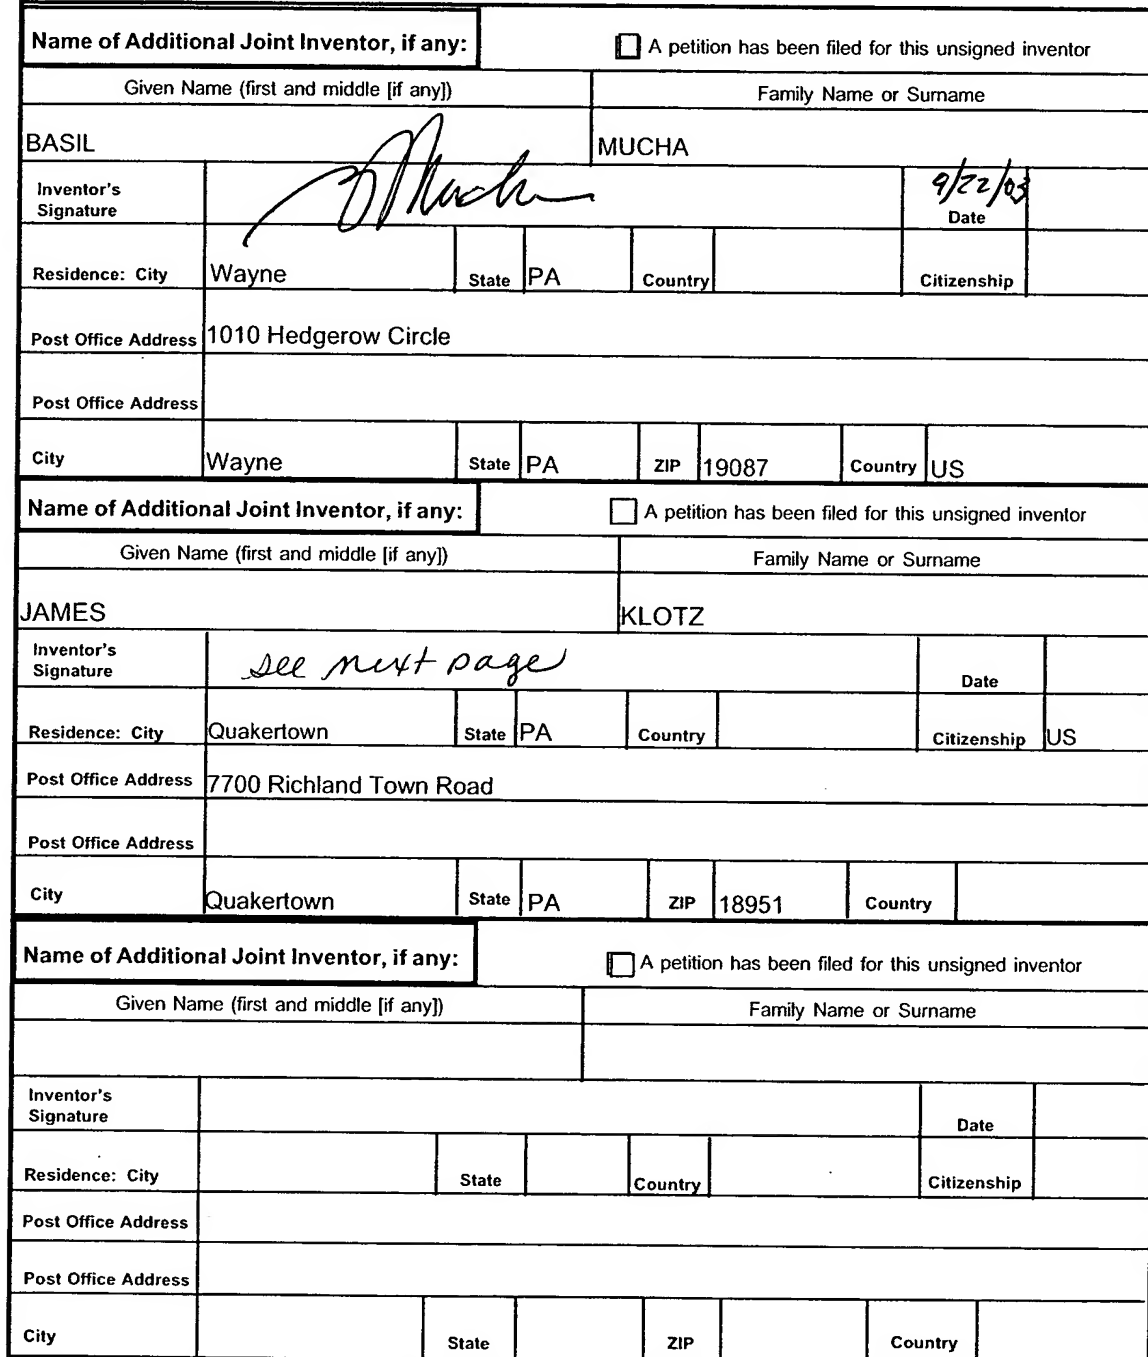 Name of Additional Joint Inventor, if any: A petition has been filed for this unsigned inventor
Given Name (first and middle [if any]) Family Name or Surname
BASIL MUCHA
Inventor's Signature B Mucha 9/22/03 Date
Residence: City Wayne State PA Country Citizenship
Post Office Address 1010 Hedgerow Circle
Post Office Address
City Wayne State PA ZIP 19087 Country US
Name of Additional Joint Inventor, if any: A petition has been filed for this unsigned inventor
Given Name (first and middle [if any]) Family Name or Surname
JAMES KLOTZ
Inventor's Signature see next page Date
Residence: City Quakertown State PA Country Citizenship US
Post Office Address 7700 Richland Town Road
Post Office Address
City Quakertown State PA ZIP 18951 Country
Name of Additional Joint Inventor, if any: A petition has been filed for this unsigned inventor
Given Name (first and middle [if any]) Family Name or Surname
Inventor's Signature Date
Residence: City State Country Citizenship
Post Office Address
Post Office Address
City State ZIP Country